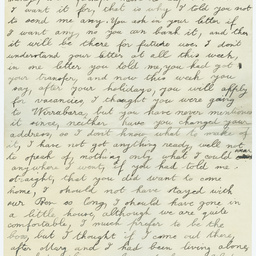 want it for, that is why I told you not
to send me any. You ask in your letter if
I want any, no you can bank it, and then
it will be there for future use. I dont
understand your letter at all this week,
in one letter you told me you had got
your transfer, and now this week you
say, after your holidays, you will apply
for vacancies, I thought you were going
to Wirrabara, but you have never mentioned
it since, neither have you changed your
address, so I don't know what to make of
it, I have not got anything ready, well not
to speak of nothing only what I could wear
anywhere, if you had told me
straight, that you did want to come
home, I should not have stayed with
our so long, I should have gone in
a little house, although we are quite
comfortable, I much prefer to be the
boss, but I thought if I come out there,
after and I had been living alone,